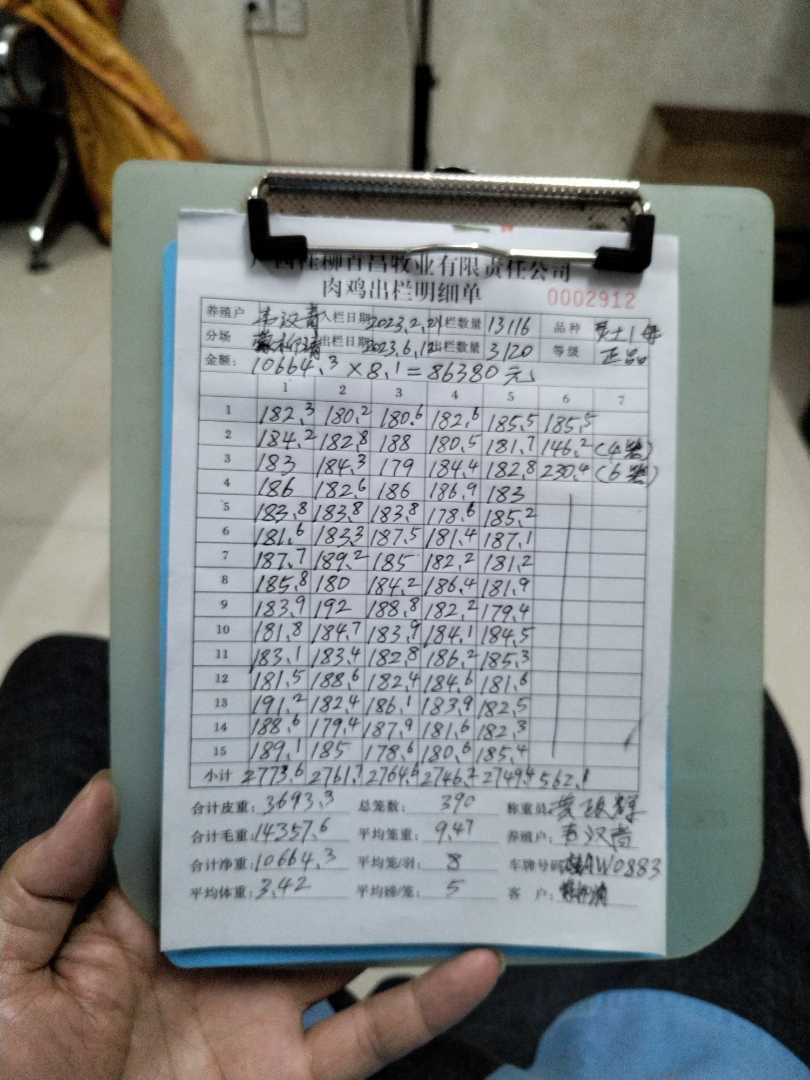 广西桂柳百昌牧业有限责任公司
肉鸡出栏明细单 0002912
养殖户 韦汉青 入栏日期 2023.2.21 入栏数量 13116 品种
分场 出栏日期 2023.6.12 出栏数量 3120 等级 正品
金额: 10664.3 × 8.1 = 86380元
1 2 3 4 5 6 7
1 182.3 180.2 180.6 182.6 185.5 185.5
2 184.2 182.8 188 180.5 181.7 146.2 (4笼)
3 183 184.3 179 184.4 182.8 230.4 (6笼)
4 186 182.6 186 186.9 183
5 183.8 183.8 183.8 178.6 185.2
6 181.6 183.3 187.5 181.4 187.1
7 187.7 189.2 185 182.2 181.2
8 185.8 180 184.2 186.4 181.9
9 183.9 192 188.8 182.2 179.4
10 181.8 184.7 183.9 184.1 184.5
11 183.1 183.4 182.8 186.2 185.3
12 181.5 188.6 182.4 184.6 181.6
13 191.2 182.4 186.1 183.9 182.5
14 188.6 179.4 187.9 181.6 182.3
15 189.1 185 178.6 180.6 185.4
小计 2773.6 2761.7 2764.6 2746.2 2749.4 562.1
合计皮重: 3693.3 总笼数: 390 称重员:
合计毛重: 14357.6 平均笼重: 9.47 养殖户: 韦汉青
合计净重: 10664.3 平均笼/羽: 8 车牌号码: AW0883
平均体重: 3.42 平均磅/笼: 5 客户: